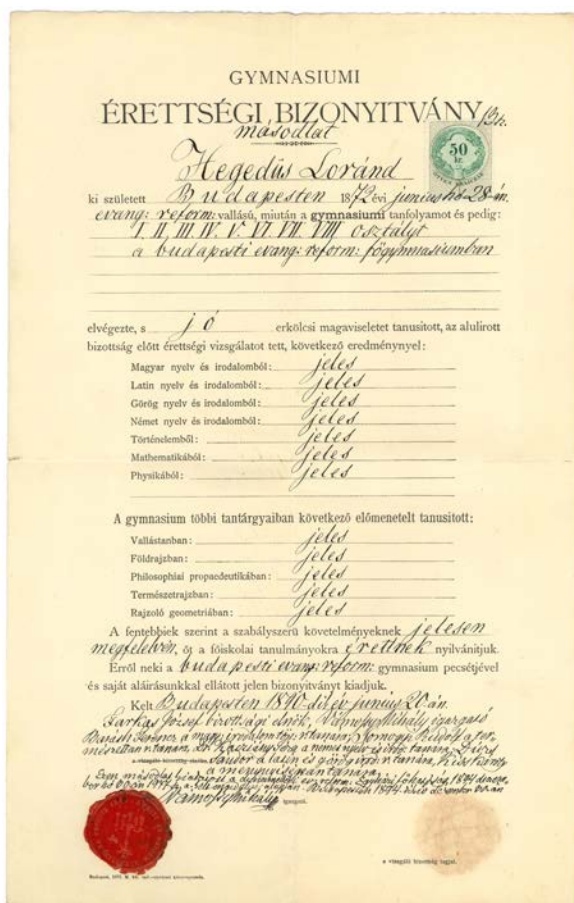 GYMNASIUMI
ÉRETTSÉGI BIZONYITVÁNY
másodlat
50
kr.
Hegedüs Loránd
ki született Budapesten 1872 évi junius hó 28-án.
evang: reform: vallásu, miután a gymnasiumi tanfolyamot és pedig:
I. II. III. IV. V. VI. VII. VIII osztályt
a budapesti evang: reform: főgymnasiumban
elvégezte, s jó erkölcsi magaviseletet tanusított, az alulirott
bizottság előtt érettségi vizsgálatot tett, következő eredménynyel:
Magyar nyelv és irodalomból: jeles
Latin nyelv és irodalomból: jeles
Görög nyelv és irodalomból: jeles
Német nyelv és irodalomból: jeles
Történelemből: jeles
Mathematikából: jeles
Physikából: jeles
A gymnasium többi tantárgyaiban következő előmenetelt tanusitott:
Vallástanban: jeles
Földrajzban: jeles
Philosophiai propaedeutikában: jeles
Természetrajzban: jeles
Rajzoló geometriában: jeles
A fentebbiek szerint a szabályszerű követelményeknek jelesen
megfelelvén, őt a főiskolai tanulmányokra érettnek nyilvánitjuk.
Erről neki a budapesti evang: reform: gymnasium pecsétjével
és saját aláirásunkkal ellátott jelen bizonyitványt kiadjuk.
Kelt Budapesten 1890-dik év junius 20-án.
Farkas József bizottsági elnök, Vámossy Mihály igazgató
Baráth Ferencz a magy. irodalom tört. r. tanára, Somogyi Rudolf a ter-
mészettan r. tanára, Dr. tanára,
a latin és görög irod. r. tanára, Kiss
a mennyiségtan tanára
Ezen másodlat
Vámossy Mihály igazgató.
a vizsgáló bizottság tagjai.